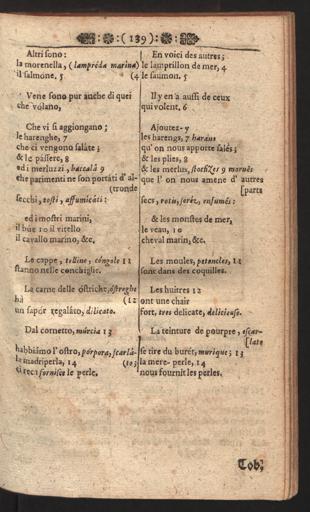 ( 139 )
Altri sono:
la morenella, (lampréda marina)
il salmone, 5
Vene sono pur anche di quei
che volano,
Che vi si aggiongano;
le harenghe, 7
che ci vengono salate;
& le passere, 8
ed i merluzzi, baccalà 9
che parimenti ne son portáti d'al-
(tronde
secchi, tosti, affumicáti:
ed i mostri marini,
il bue 10 il vitello
il cavallo marino, &c.
Le cappe, telline, cóngole 11
stanno nelle conchiglie.
La carne delle óstriche, óstreghe
há (12
un sapór regaláto, dilicato.
Dal cornetto, múrcia 13
habbiámo l'ostro, pórpora, scarlá-
la madriperla, 14 (to;
ci reca fornisce le perle.
En voici des autres;
le lamprillon de mer, 4
(4 le saumon. 5
Il y en a aussi de ceux
qui volent, 6
Ajoutez-y
les harengs, 7 harans
qu' on nous apporte salés;
& les plies, 8
& les merlus, stocfizes 9 moruës
que l' on nous amene d' autres
[part
secs, rotis, forez, enfumés:
& les monstes de mer,
le veau, 10
cheval marin, &c.
Les moules, petoncles, 11
sont dans des coquilles.
Les huitres 12
ont une chair
fort, tres delicate, delicieuse.
La teinture de pourpre, escar-
[late
se tire du burét, murique; 13
la mere-perle, 14
nous fournit les perles.
Tob,